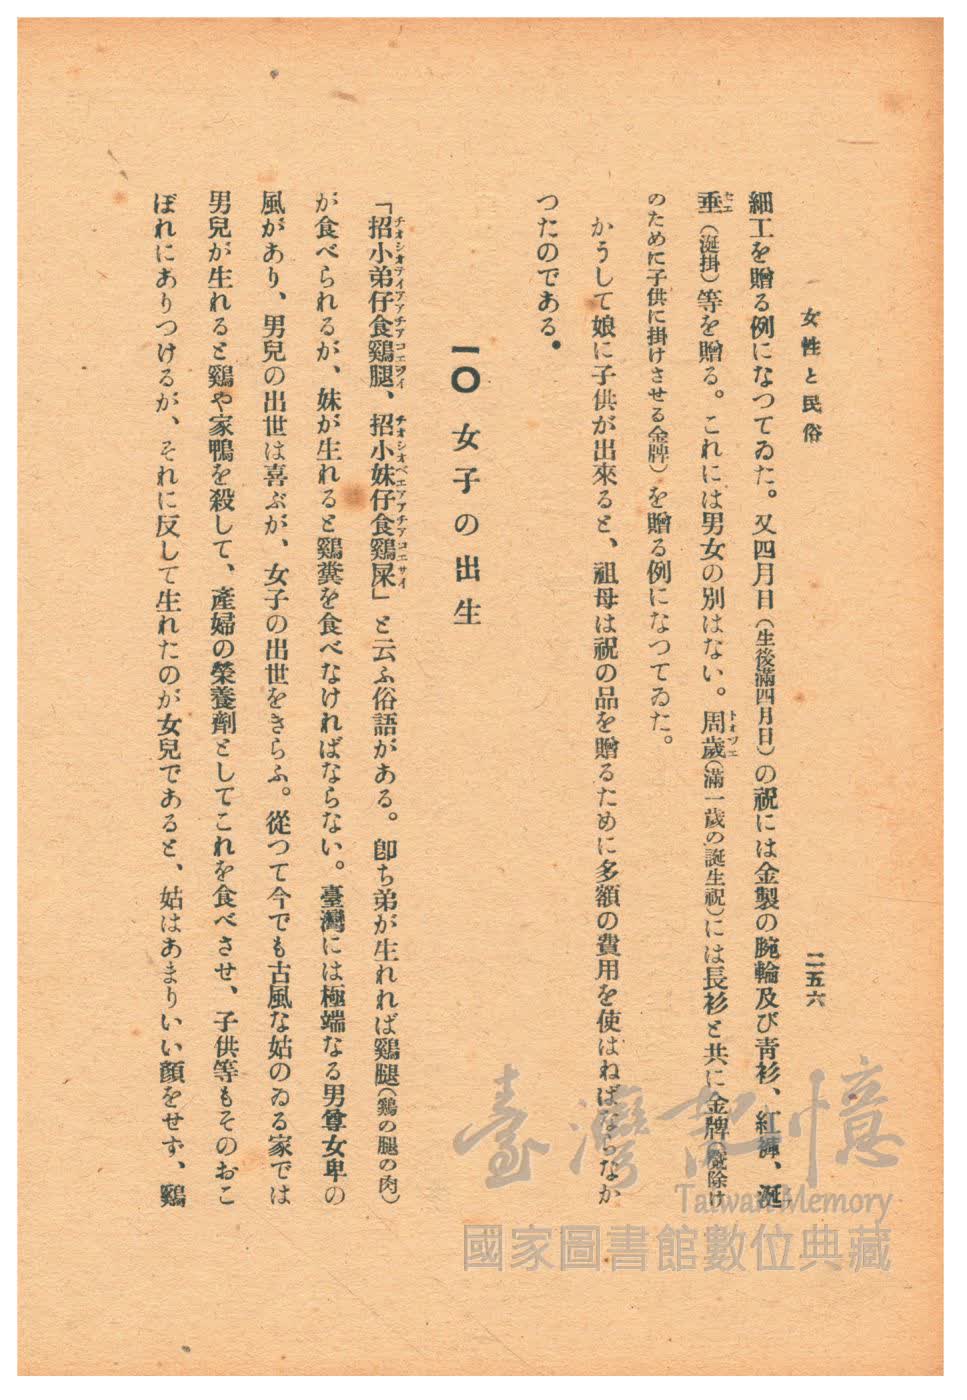 女性と民俗
二五六
細工を贈る例になつてゐた。又四月日（生後滿四月日）の祝には金製の腕輪及び靑衫、紅褲、涎
垂（涎掛）等を贈る。これには男女の別はない。周歲（滿一歲の誕生祝）には長衫と共に金牌（魔除け
のために子供に掛けさせる金牌）を贈る例になつてゐた。
かうして娘に子供が出來ると、祖母は祝の品を贈るために多額の費用を使はねばならなか
つたのである。
一〇 女子の出生
「招小弟仔食鷄腿、招小妹仔食鷄屎」と云ふ俗語がある。卽ち弟が生れれば鷄腿（鷄の腿の肉）
が食べられるが、妹が生れると鷄糞を食べなければならない。臺灣には極端なる男尊女卑の
風があり、男兒の出世は喜ぶが、女子の出世をきらふ。從つて今でも古風な姑のゐる家では
男兒が生れると鷄や家鴨を殺して、產婦の榮養劑としてこれを食べさせ、子供等もそのおこ
ぼれにありつけるが、それに反して生れたのが女兒であると、姑はあまりいい顏をせず、鷄
臺灣記憶
Taiwan Memory
國家圖書館數位典藏